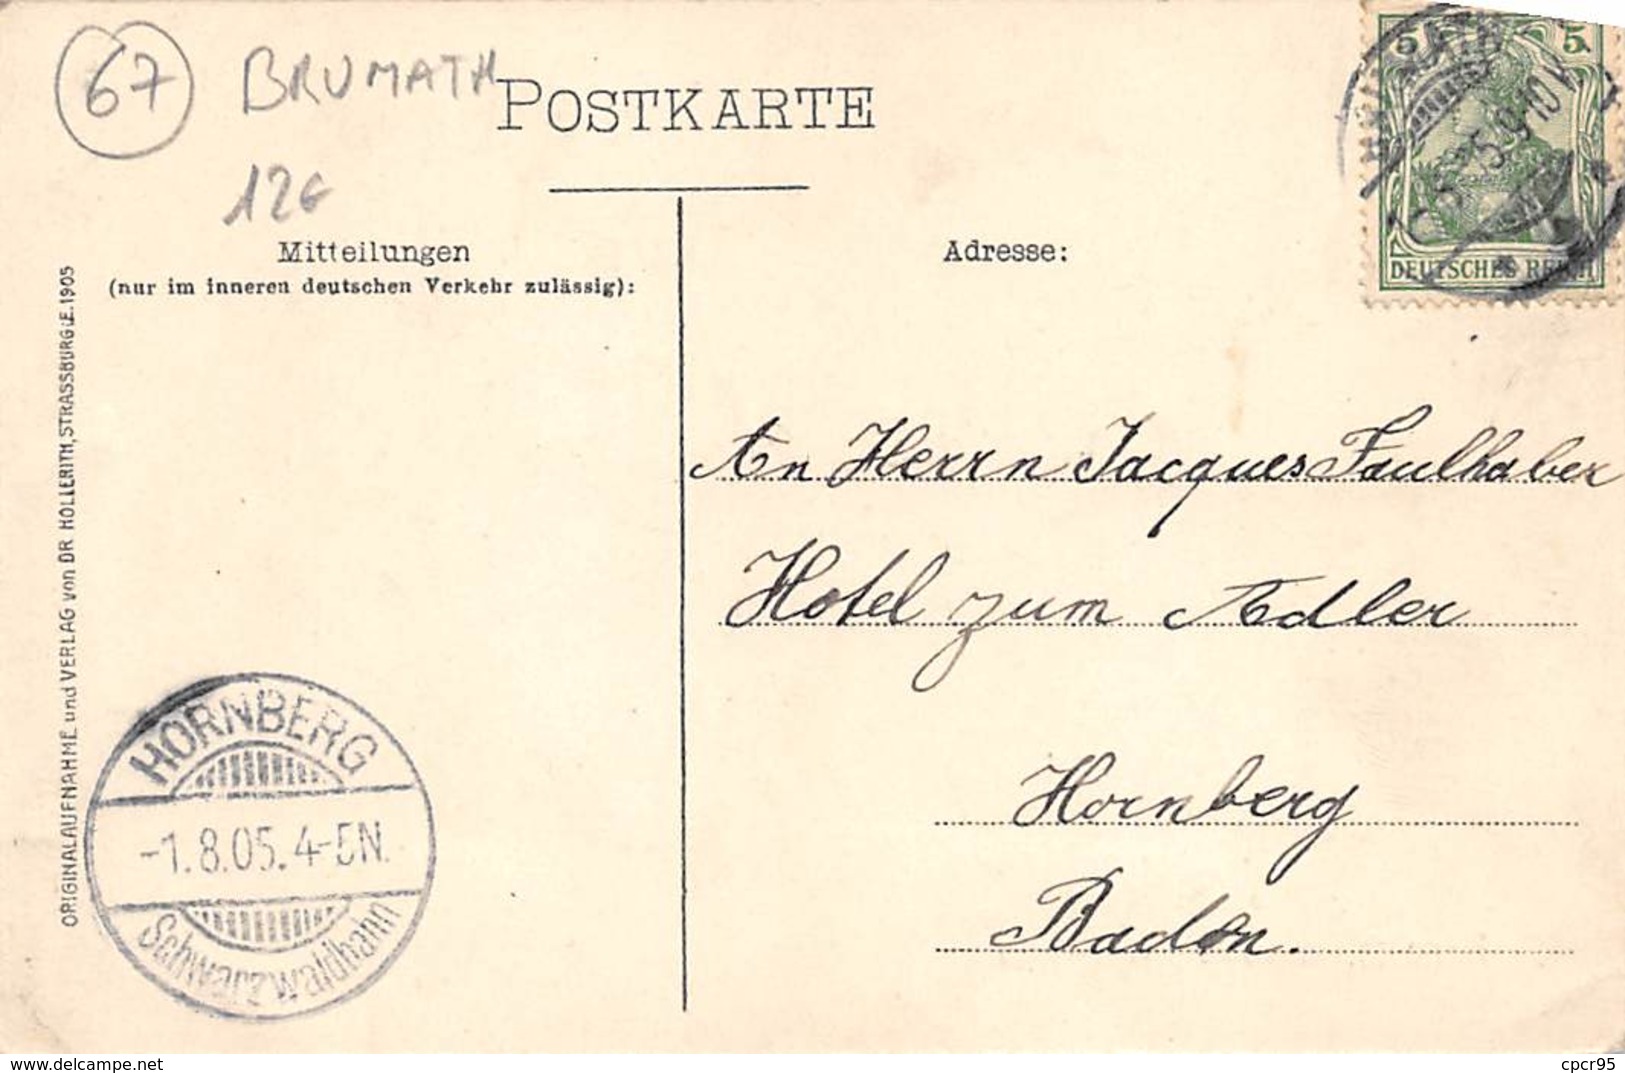 67 BRUMATH
12€
POSTKARTE
Mitteilungen
(nur im inneren deutschen Verkehr zulässig):
Adresse:
5 5
DEUTSCHES REICH
An Herrn Jacques Faulhaber
Hotel zum Adler
Hornberg
Baden.
ORIGINALAUFNAHME und VERLAG von DR HOLLERITH, STRASSBURG i.E. 1905
HORNBERG
-1.8.05. 4-5N.
Schwarzwaldbahn
www.delcampe.net
cpcr95